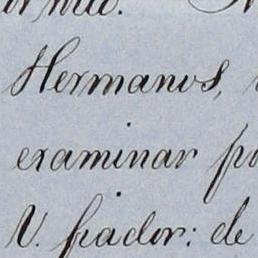 Hermanos,
examinar
V. fiador: de